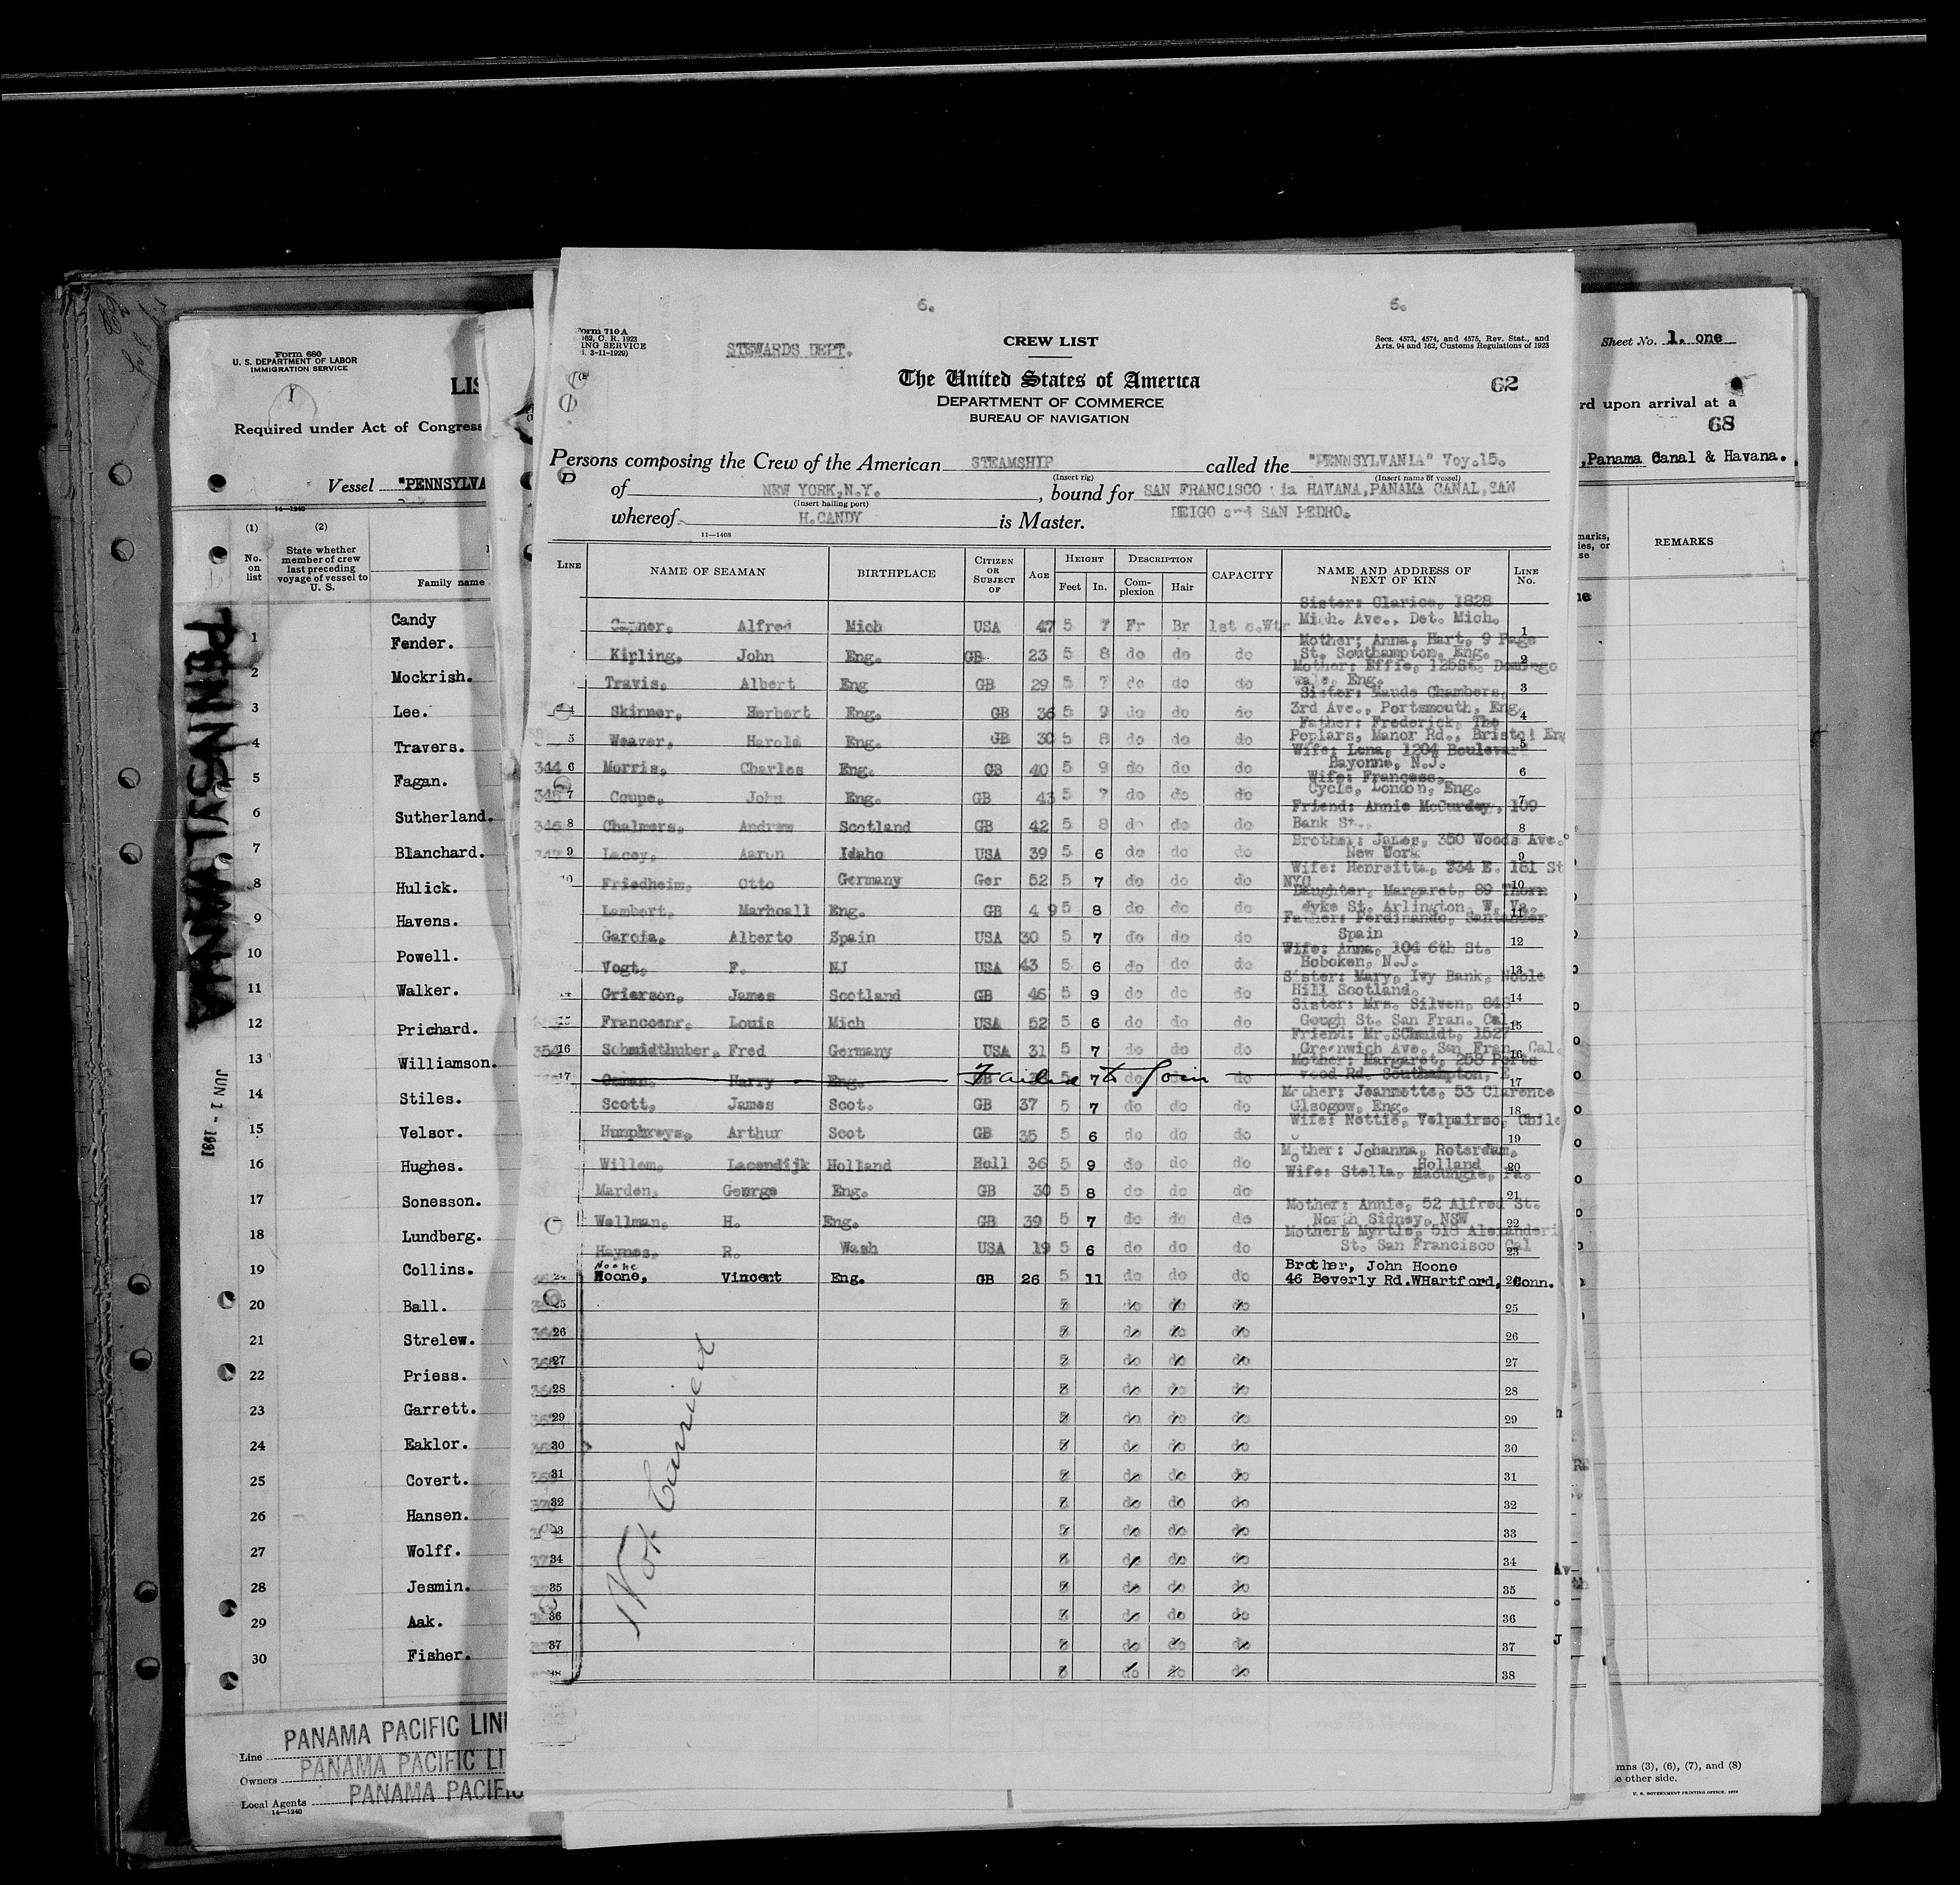 Form 680
U. S. DEPARTMENT OF LABOR
IMMIGRATION SERVICE
LIS
Required under Act of Congress
Vessel "PENNSYLVA
14—1240
(1) (2)
No. on list
State whether member of crew last preceding voyage of vessel to U. S.
Family name
Candy
1 Fender.
2 Mockrish.
3 Lee.
4 Travers.
5 Fagan.
6 Sutherland.
7 Blanchard.
8 Hulick.
9 Havens.
10 Powell.
11 Walker.
12 Prichard.
13 Williamson.
14 Stiles.
15 Velsor.
16 Hughes.
17 Sonesson.
18 Lundberg.
19 Collins.
20 Ball.
21 Strelew.
22 Priess.
23 Garrett.
24 Eaklor.
25 Covert.
26 Hansen.
27 Wolff.
28 Jesmin.
29 Aak.
30 Fisher.
PENNSYLVANIA
JUN 1 - 1931
Line PANAMA PACIFIC LINE
Owners PANAMA PACIFIC LI
Local Agents PANAMA PACIFIC
14—1240
6. 6.
Form 710 A
162, C. R. 1923
ING SERVICE
3-11-1929)
STEWARDS DEPT.
CREW LIST
Secs. 4573, 4574, and 4575, Rev. Stat., and
Arts. 94 and 162, Customs Regulations of 1923
The United States of America
62
DEPARTMENT OF COMMERCE
BUREAU OF NAVIGATION
Persons composing the Crew of the American STEAMSHIP called the "PENNSYLVANIA" Voy.15.
(Insert rig) (Insert name of vessel)
of NEW YORK,N.Y. , bound for SAN FRANCISCO via HAVANA,PANAMA CANAL,SAN
(Insert hailing port)
whereof H.CANDY is Master. DEIGO and SAN PEDRO.
11—1408
LINE NAME OF SEAMAN BIRTHPLACE CITIZEN OR SUBJECT OF AGE HEIGHT Feet In. DESCRIPTION Complexion Hair CAPACITY NAME AND ADDRESS OF NEXT OF KIN LINE No.
Sister: Clarice, 1828
Conner, Alfred Mich USA 47 5 7 Fr Br 1st c.Wtr Mich. Ave., Det. Mich. 1
Mother: Anna, Hart, 9 Page
Kipling, John Eng. GB 23 5 8 do do do St. Southampton, Eng. 2
Mother: Effie, 125St. Domingo
Travis, Albert Eng GB 29 5 7 do do do vale, Eng. 3
Sister: Maude Chambers,
4 Skinner, Herbert Eng. GB 36 5 9 do do do 3rd Ave., Portsmouth, Eng. 4
Father: Frederick, The
5 Weaver, Harold Eng. GB 30 5 8 do do do Poplars, Manor Rd., Bristol Eng 5
Wife: Lena, 1204 Boulevard
344 6 Morris, Charles Eng. GB 40 5 9 do do do Bayonne, N.J. 6
Wife: Francess,
345 7 Coupe, John Eng. GB 43 5 7 do do do Cycle, London, Eng. 7
Friend: Annie McCurdey, 109
346 8 Chalmers, Andrew Scotland GB 42 5 8 do do do Bank St., 8
Brother: James, 350 Woods Ave.
347 9 Lacey, Aaron Idaho USA 39 5 6 do do do New Work 9
Wife: Henreitta, 334 E. 181 St
10 Friedheim, Otto Germany Ger 52 5 7 do do do NYC 10
Daughter, Margaret, 89 Thorn
Lambert, Marhoall Eng. GB 4 9 5 8 do do do dyke St. Arlington, W. Va. 11
Father: Ferdinando, Santander
Garcia, Alberto Spain USA 30 5 7 do do do Spain 12
Wife: Anna, 104 6th St.
Vogt, F. NJ USA 43 5 6 do do do Hoboken, N.J. 13
Sister: Mary, Ivy Bank, Noble
14 Grierson, James Scotland GB 46 5 9 do do do Hill Scotland. 14
Sister: Mrs. Silven, 848
15 Francoenr, Louis Mich USA 52 5 6 do do do Gough St. San Fran. Cal. 15
Friend: Mr.SChmidt, 1527
354 16 Schmidthuber, Fred Germany USA 31 5 7 do do do Greenwich Ave. San Fran. Cal. 16
Mother: Margaret, 258 Ports
17 Harry Eng. GB Failed to Join 5 7 do do do wood Rd. Southampton, E 17
Mother: Jeannette, 53 Clarence
Scott, James Scot. GB 37 5 7 do do do Glsogow, Eng. 18
Wife: Nettie, Valpairso, Chile
Humphreys, Arthur Scot GB 35 5 6 do do do 19
Mother: Johanna, Roterdam,
Willem, Lacendijk Holland Holl 36 5 9 do do do Holland 20
Wife: Stella, Macungie, Pa.
Marden, George Eng. GB 30 5 8 do do do 21
Mother: Annie, 52 Alfred St.
Wellman, H. Eng. GB 39 5 7 do do do North Sidney, NSW 22
Mother: Myrtle, 518 Alexanderi
Haynes, R. Wash USA 19 5 6 do do do St. San Francisco Cal 23
Noone
24 Hoone, Vincent Eng. GB 26 5 11 do do do Brother, John Hoone
46 Beverly Rd.WHartford, Conn. 24
25 5 do do do 25
26 5 do do do 26
27 5 do do do 27
28 5 do do do 28
29 5 do do do 29
30 5 do do do 30
31 5 do do do 31
32 5 do do do 32
33 5 do do do 33
34 5 do do do 34
35 5 do do do 35
36 5 do do do 36
37 5 do do do 37
38 5 do do do 38
Not Carried
Sheet No. 1. one
rd upon arrival at a
68
,Panama Canal & Havana.
REMARKS
mns (3), (6), (7), and (8)
e other side.
U. S. GOVERNMENT PRINTING OFFICE